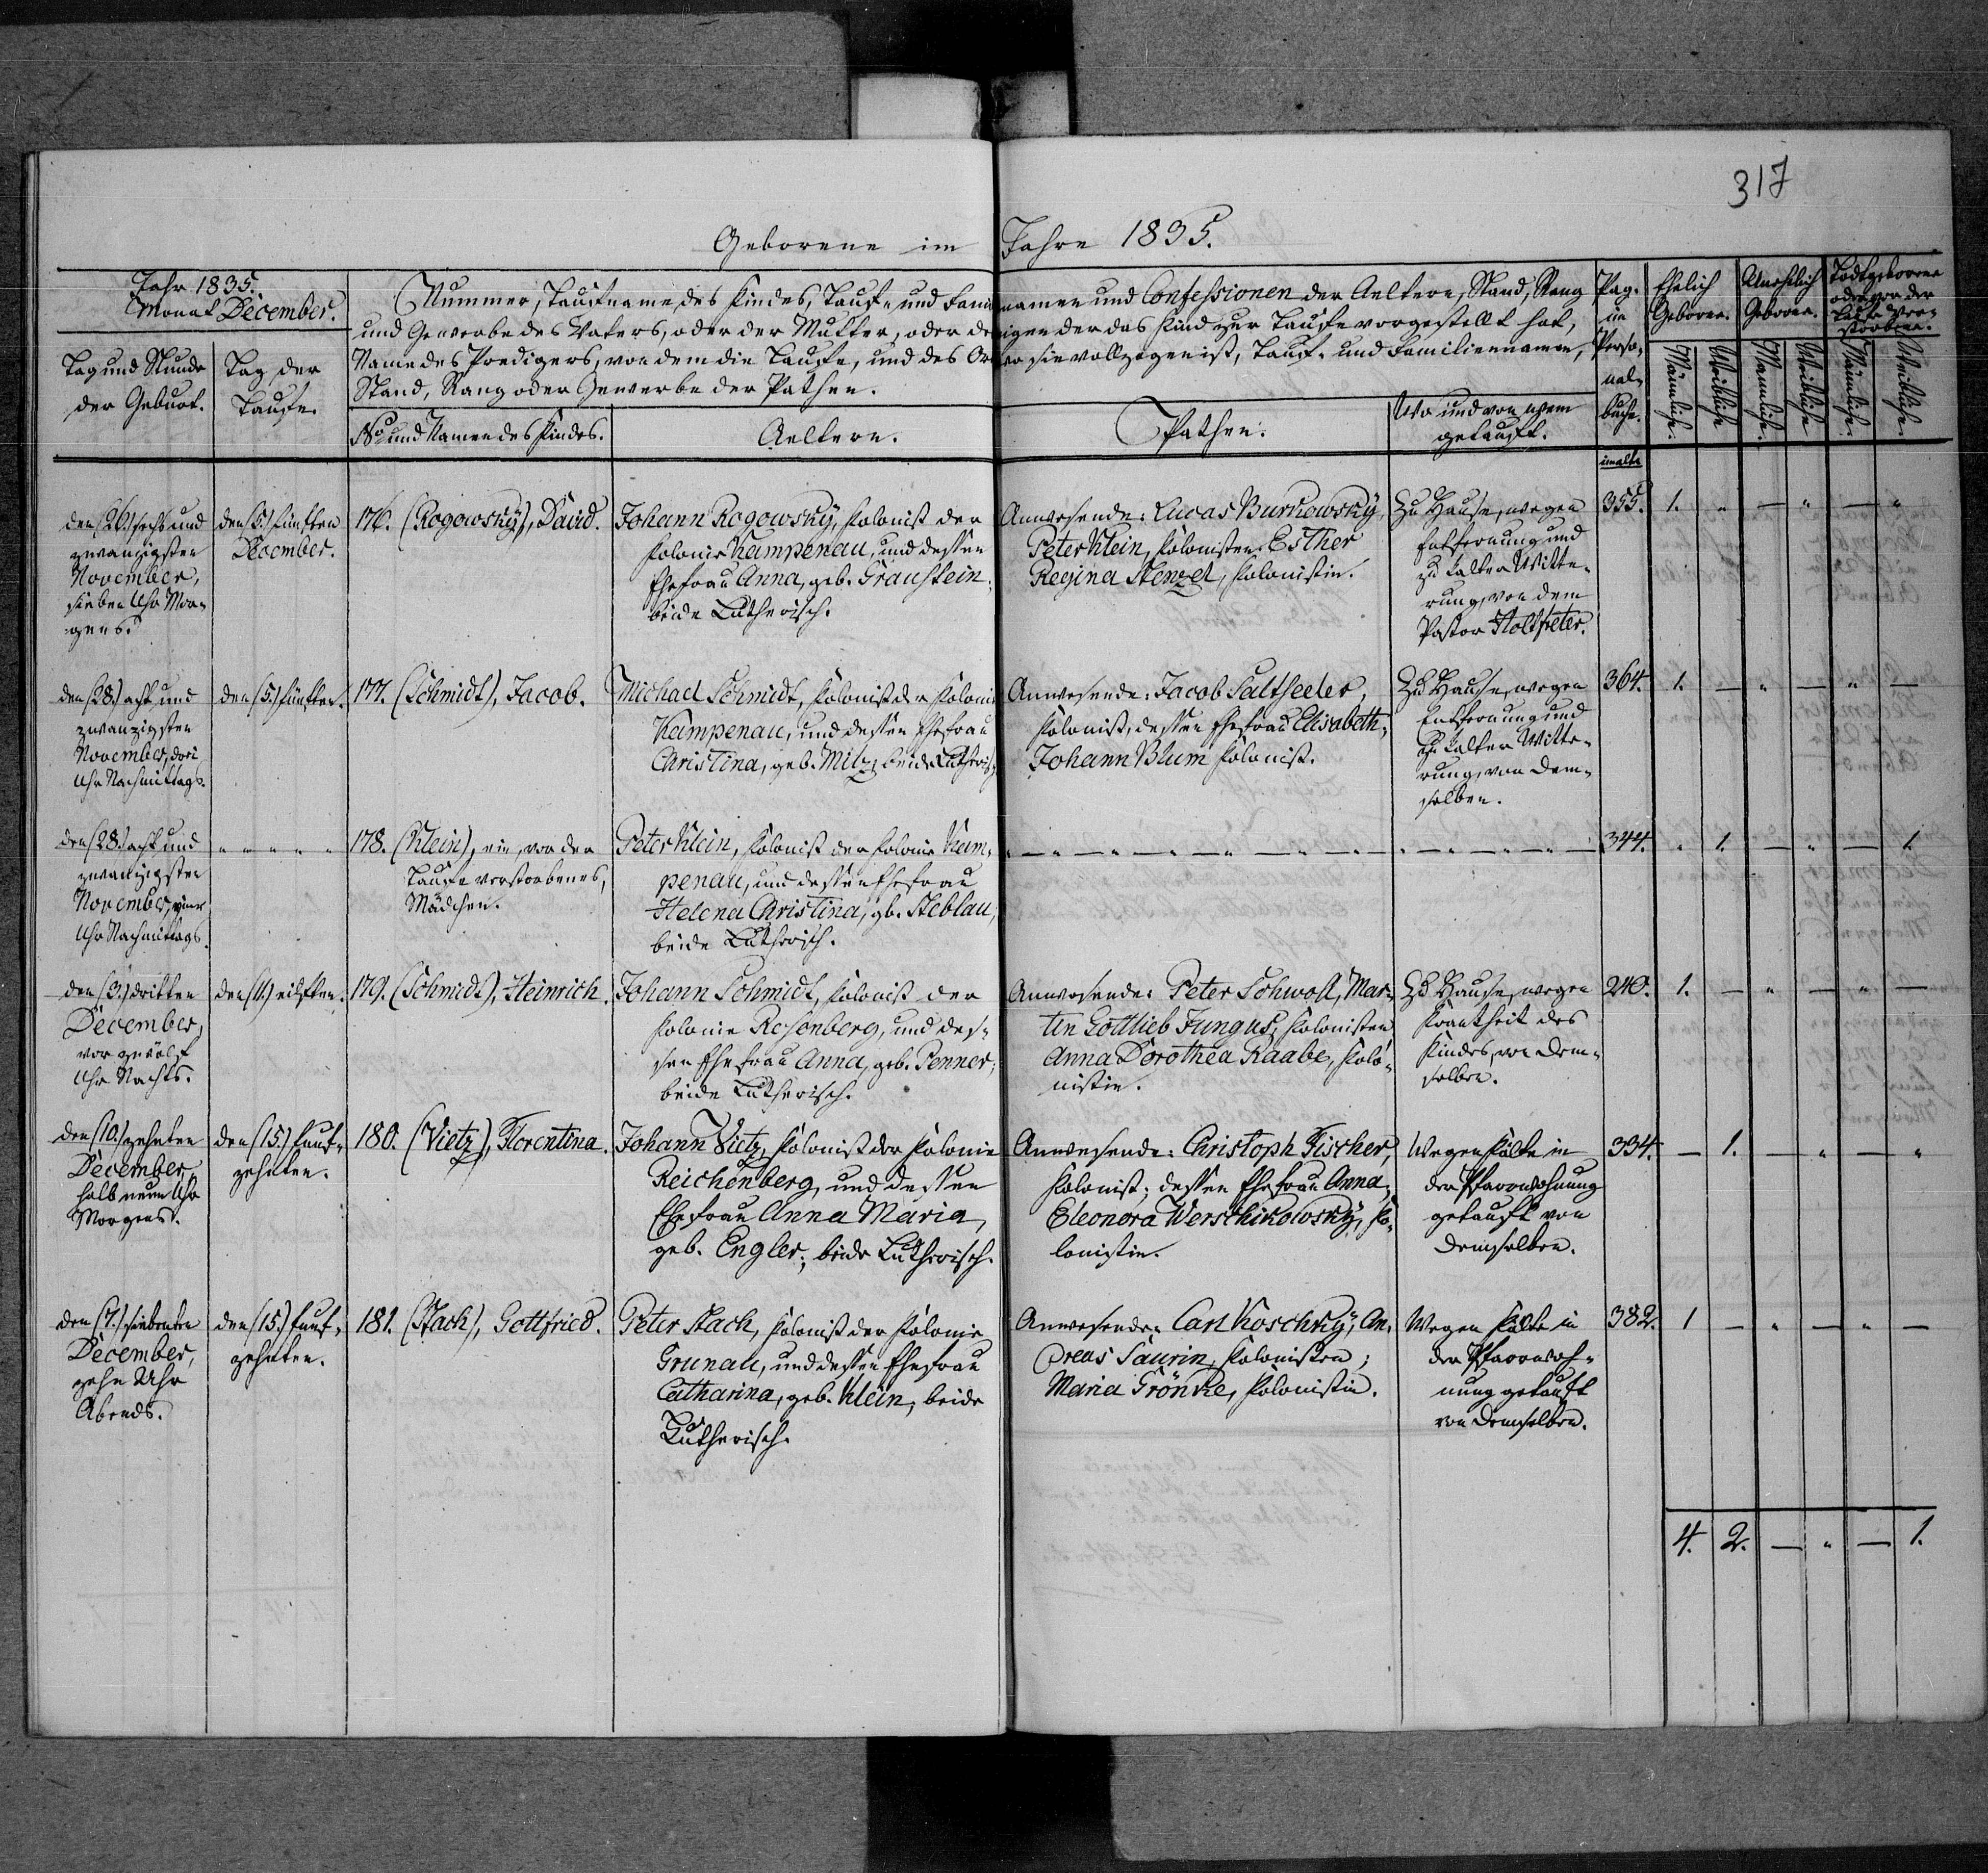 317
Geborene im Jahre 1835.
Jahr 1835.
Monat December.
Tag und Stunde
der Geburt.
Tag der
Taufe.
Nummer, Taufname des Kindes, Tauf- und Familiennamen und Confessionen der Aeltern, Stand, Rang
und Gewerbe des Vaters, oder der Mutter, oder desjenigen der das Kind zur Taufe vorgestellt hat,
Name des Predigers, von dem die Taufe, und des Orts wo sie vollzogen ist, Tauf- und Familiennamen,
Stand, Rang oder Gewerbe der Pathen.
No und Namen des Kindes.
Aeltern.
Pathen.
Wo und von wem
getauft.
Pag.
im
Perso-
nal-
buche.
Ehelich
Geboren.
Unehelich
Geboren.
Todtgeborene
oder vor der
Taufe Ver-
storbene.
Männliche.
Weibliche
Männliche.
Weibliche
Männliche.
Weibliche.
im alten
den (26.) sechs und
zwanzigsten
November,
sieben Uhr Mor-
gens.
den (5.) fünften
December.
176. (Rogowsky), David.
Johann Rogowsky, Kolonist der
Kolonie Kampenau, und dessen
Ehefrau Anna, geb. Graustein;
beide Lutherisch.
Anwesende: Lucas Burkowsky,
Peter Klein, Kolonisten. Esther
Regina Stenzel, Kolonistin.
Zu Hause, wegen
Entfernung und
zu kalter Witte-
rung, von dem
Pastor Holtfreter.
355. 1. " — " — "
den (28.) acht und
zwanzigsten
November, drei
Uhr Nachmittags.
den (5.) fünften.
177. (Schmidt), Jacob.
Michael Schmidt, Kolonist der Kolonie
Kampenau, und dessen Ehefrau
Christina, geb. Milz; beide Lutherisch.
Anwesende: Jacob Saltseeler,
Kolonist, dessen Ehefrau Elisabeth;
Johann Blum Kolonist.
Zu Hause, wegen
Entfernung und
zu kalter Witte-
rung, von dem-
selben.
364. 1. — " — " —
den (28.) acht und
zwanzigsten
November, vier
Uhr Nachmittags.
" " " " "
178. (Klein), ein, vor der
Taufe verstorbenes,
Mädchen.
Peter Klein, Kolonist der Kolonie Kam-
penau, und dessen Ehefrau
Helena Christina, gb. Steblau,
beide Lutherisch.
344. " 1. — " — 1.
den (3.) dritten
December,
vor zwölf
Uhr Nachts.
den (11.) eilften.
179. (Schmidt), Heinrich.
Johann Schmidt, Kolonist der
Kolonie Rosenberg, und des-
sen Ehefrau Anna, geb. Penner;
beide Lutherisch.
Anwesende: Peter Schwoll, Mar-
tin Gottlieb Jungus, Kolonisten
Anna Dorothea Raabe, Kolo-
nistin.
Zu Hause, wegen
Krankheit des
Kindes, von dem-
selben.
240. 1. — " — " —
den (10.) zehnten
December,
halb neun Uhr
Morgens.
den (15.) funf-
zehnten.
180. (Vietz), Florentina.
Johann Vietz, Kolonist der Kolonie
Reichenberg, und dessen
Ehefrau Anna Maria,
geb. Engler; beide Lutherisch.
Anwesende: Christoph Fischer,
Kolonist; dessen Ehefrau Anna;
Eleonora Werschikolowsky, Ko-
lonistin.
Wegen Kälte in
der Pfarrwohnung
getauft von
demselben.
334. — 1. — " — "
den (7.) siebenten
December,
zehn Uhr
Abends.
den (15.) funf-
zehnten.
181. (Stach), Gottfried.
Peter Stach, Kolonist der Kolonie
Grunau, und dessen Ehefrau
Catharina, geb. Klein, beide
Lutherisch.
Anwesende: Carl Koschky, An-
dreas Saurin, Kolonisten;
Maria Grönke, Kolonistin.
Wegen Kälte in
der Pfarrwoh-
nung getauft
von demselben.
382. 1 — " — " —
4. 2. — " — 1.